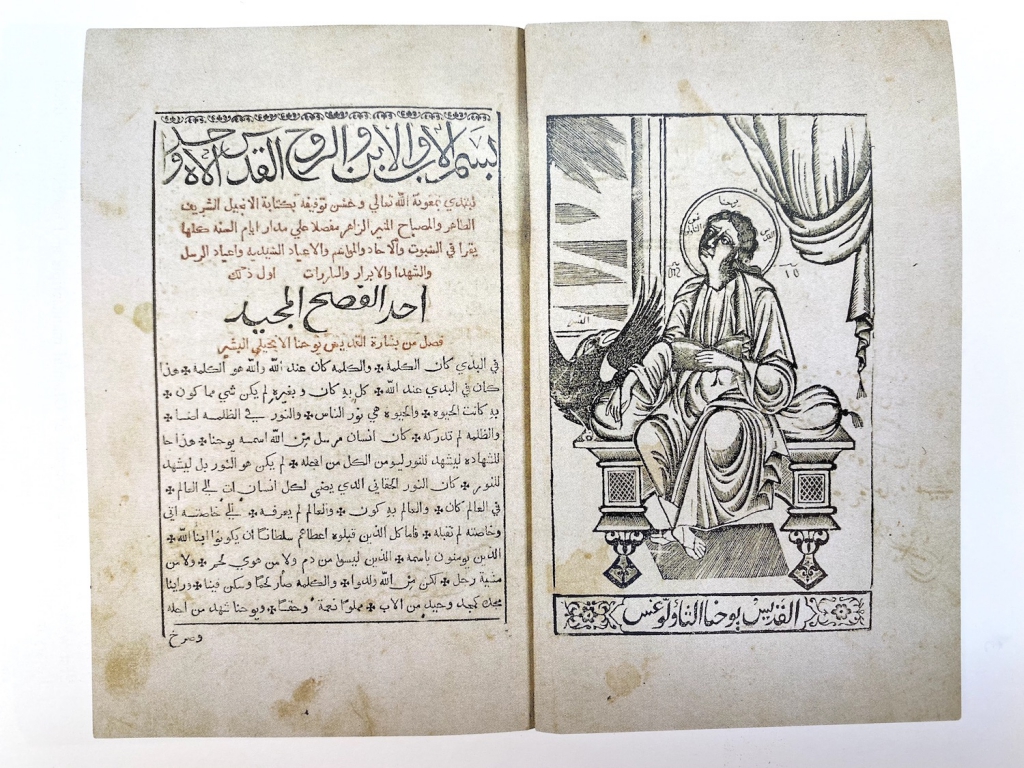 القديس يوحنا الثاولوغس
بسم الاب والابن والروح القدس الاه واحد
نبتدي بمعونة الله تعالي وحسن توفيقه بكتابة الانجيل الشريف
الطاهر والمصباح المنير الزاهر مفصلا علي مدار ايام السنه كلها
يقرا في السبوت والاحاد والمواسم والاعياد السيديه واعياد الرسل
والشهدا والابرار والبارات اول ذلك
احد الفصح المجيد
فصل من بشارة القديس يوحنا الانجيلي البشير
في البدي كان الكلمة ✤ والكلمه كان عند الله والله هو الكلمة ✤ هذا
كان في البدي عند الله ✤ كل به كان وبغيره لم يكن شي مما كون ✤
به كانت الحيوه ✤ والحيوه هي نور الناس ✤ والنور في الظلمه اضا ✤
والظلمه لم تدركه ✤ كان انسان مرسل من الله اسمه يوحنا ✤ هذا جا
للشهاده ليشهد للنور ليومن الكل من اجله ✤ لم يكن هو النور بل ليشهد
للنور ✤ كان النور الحقاني الدي يضى لكل انسان ات الى العالم ✤
في العالم كان ✤ والعالم به كون ✤ والعالم لم يعرفه ✤ الى خاصته اتى
وخاصته لم تقبله ✤ فاما كل الذين قبلوه اعطاهم سلطانًا ان يكونوا ابنا الله ✤
الذين يومنون باسمه ✤ الذين ليسوا من دم ولا من هوي لحم ✤ ولا من
مشية رجل ✤ لكن من الله ولدوا ✤ والكلمه صار لحمًا وسكن فينا ✤ وراينا
مجده كمجد وحيد من الاب ✤ مملوا نعمة وحقًا ✤ ويوحنا شهد من اجله
وصرخ